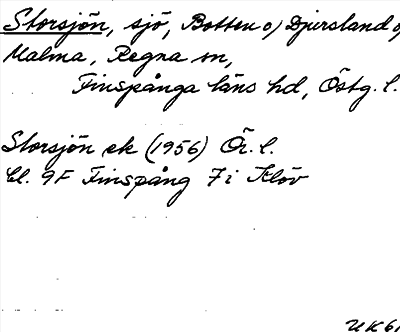 Storsjön, sjö, Botten o) Djursland o)
Malma, Regna sn,
Finspånga läns hd, Östg. l.
Storsjön ek (1956) Ör. l.
bl. 9F Finspång 7i Klöv
UK61